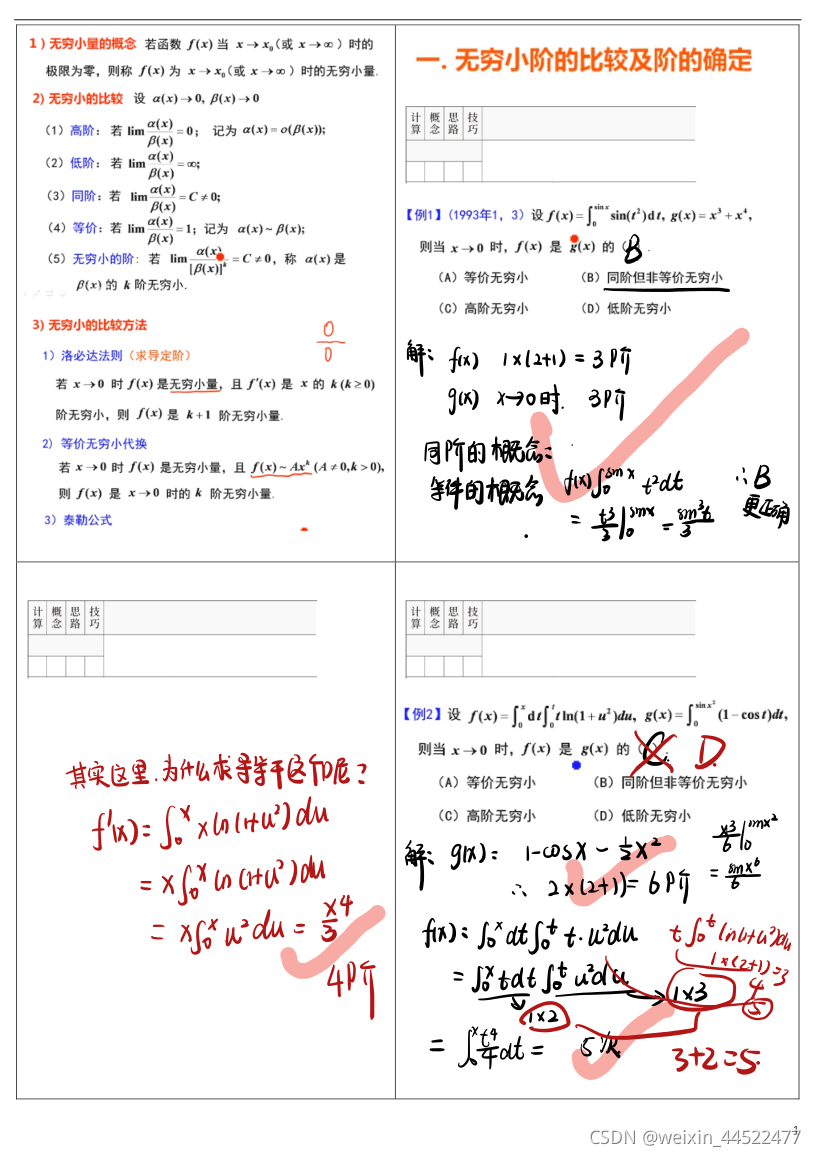 1) 无穷小量的概念 若函数 f(x) 当 x→x₀(或 x→∞) 时的
极限为零，则称 f(x) 为 x→x₀(或 x→∞) 时的无穷小量.
2) 无穷小的比较 设 α(x)→0, β(x)→0
(1) 高阶: 若 lim α(x)/β(x) = 0; 记为 α(x) = o(β(x));
(2) 低阶: 若 lim α(x)/β(x) = ∞;
(3) 同阶: 若 lim α(x)/β(x) = C ≠ 0;
(4) 等价: 若 lim α(x)/β(x) = 1; 记为 α(x) ~ β(x);
(5) 无穷小的阶: 若 lim α(x)/[β(x)]ᵏ = C ≠ 0, 称 α(x) 是
β(x) 的 k 阶无穷小.
3) 无穷小的比较方法
0/0
1) 洛必达法则 (求导定阶)
若 x→0 时 f(x) 是无穷小量，且 f′(x) 是 x 的 k (k≥0)
阶无穷小，则 f(x) 是 k+1 阶无穷小量.
2) 等价无穷小代换
若 x→0 时 f(x) 是无穷小量，且 f(x) ~ Axᵏ (A≠0,k>0),
则 f(x) 是 x→0 时的 k 阶无穷小量.
3) 泰勒公式
一. 无穷小阶的比较及阶的确定
计算 概念 思路 技巧
【例1】(1993年1, 3) 设 f(x)=∫₀^{sin x} sin(t²)dt, g(x)=x³+x⁴,
则当 x→0 时, f(x) 是 g(x) 的 ( B .
(A) 等价无穷小 (B) 同阶但非等价无穷小
(C) 高阶无穷小 (D) 低阶无穷小
解: f(x) 1×(2+1) = 3阶
g(x) x→0时. 3阶
同阶的概念:
等价的概念 f(x)∫₀^{sin x} t²dt
= t³/3 |₀^{sin x} = sin³x/3
∴B
更正确
计算 概念 思路 技巧
其实这里.为什么求导等于这个呢?
f′(x) = ∫₀ˣ x ln(1+u²)du
= x∫₀ˣ ln(1+u²)du
= x∫₀ˣ u²du = x⁴/3
4阶
计算 概念 思路 技巧
【例2】设 f(x)=∫₀ˣ dt∫₀ᵗ t ln(1+u²)du, g(x)=∫₀^{sin x²} (1−cos t)dt,
则当 x→0 时, f(x) 是 g(x) 的 ( C ). D.
(A) 等价无穷小 (B) 同阶但非等价无穷小
(C) 高阶无穷小 (D) 低阶无穷小
解: g(x) = 1−cosx ~ ½x²
x³/6 |₀^{sin x²}
= sin x⁶/6
∴ 2×(2+1) = 6阶
f(x) = ∫₀ˣ dt∫₀ᵗ t·u²du
t∫₀ᵗ ln(1+u²)du
1×(2+1)=3
= ∫₀ˣ tdt ∫₀ᵗ u²du → 1×3
4
5
1×2
= ∫₀ˣ t⁴/4 dt = 5阶.
3+2=5.
1
CSDN @weixin_44522477